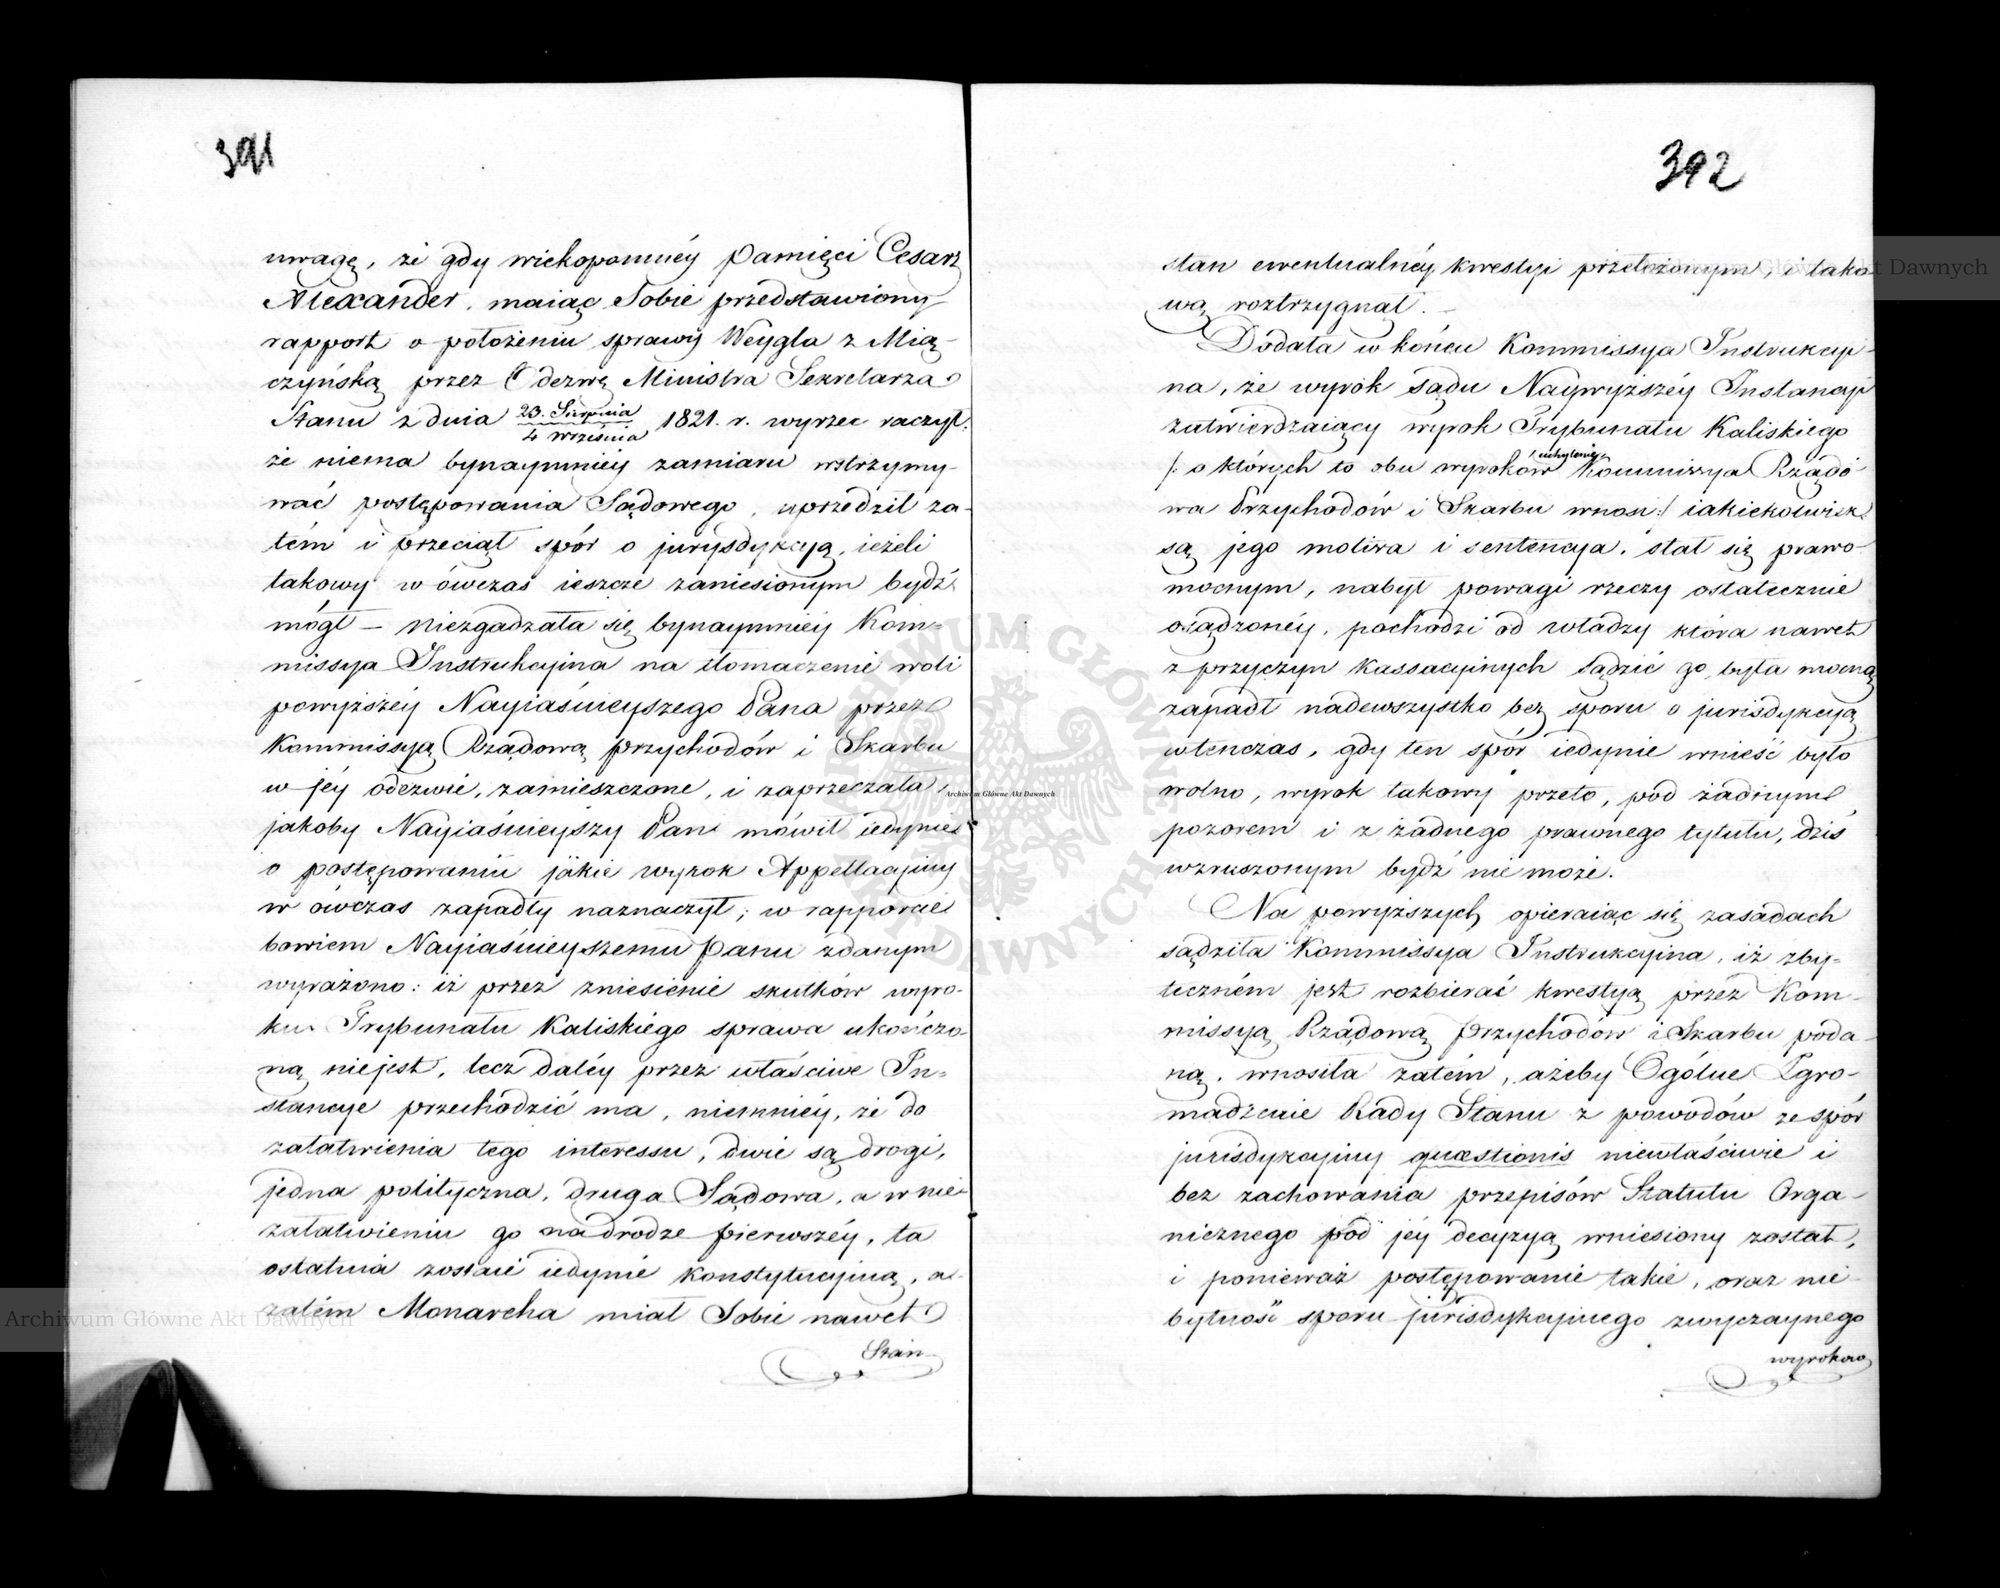 391
uwagę, że gdy wiekopomnéy Pamięci Cesarz
Alexander, maiąc Sobie przedstawiony
rapport o położeniu sprawy Weygla z Mią-
czyńską przez Odezwę Ministra Sekretarza
Stanu z dnia 23. Sierpnia / 4 września 1821. r. wyrzec raczył:
że niema bynaymniéy zamiaru wstrzymy-
wać postępowania Sądowego, uprzedził za-
tém i przeciął spór o jurysdykcyą, ieżeli
takowy w ówczas ieszcze zaniesionym bydź
mógł — niezgadzała się bynaymniéy Kom-
missya Instrukcyina na tłomaczenie woli
powyższéy Nayiaśnieyszego Pana przez
Kommissyą Rządową przychodów i Skarbu
w jéy odezwie, zamieszczone, i zaprzeczała,
jakoby Nayiaśnieyszy Pan mówił iedynie
o postępowaniu jakie wyrok Appellacyiny
w ówczas zapadły naznaczył; w rapporcie
bowiem Nayiaśnieyszemu Panu zdanym
wyrażono: iż przez zniesienie skutków wyro-
ku Trybunału Kaliskiego sprawa ukończo-
ną niejest, lecz daléy przez właściwe In-
stancye przechodzić ma, niemniéy, że do
załatwienia tego interessu, dwie są drogi,
jedna polityczna, druga Sądowa, a w nie-
załatwieniu go na drodze pierwszéy, ta
ostatnia zostaie iedynie konstytucyiną, a
zatém Monarcha miał Sobie nawet
Stan
392
stan ewentualnéy kwestyi przełożonym, i tako
wą roztrzygnął.
Dodała w końcu Kommissya Instrukcyi-
na, że wyrok sądu Naywyższéy Instancyi
zatwierdzaiący wyrok Trybunału Kaliskiego
/: o których to obu wyroków uchylenie Kommissya Rządo
wa Przychodów i Skarbu wnosi :/ iakiekolwiek
są jego motiva i sentencya, stał się prawo-
mocnym, nabył powagi rzeczy ostatecznie
osądzonéy, pochodzi od władzy która nawet
z przyczyn kassacyinych sądzić go była mocną
zapadł nadewszystko bez sporu o jurisdykcyą
wtenczas, gdy ten spór iedynie wnieść było
wolno, wyrok takowy przeto, pod żadnym
pozorem i z żadnego prawnego tytułu, dziś
wzruszonym bydź nie może.
Na powyższych opieraiąc się zasadach
sądziła Kommissya Instrukcyina, iż zby-
teczném jest rozbierać kwestyą przez Kom-
missyą Rządową przychodów i Skarbu poda-
ną, wnosiła zatém, ażeby Ogólne Zgro-
madzenie Rady Stanu z powodów że spór
jurisdykcyiny quæstionis niewłaściwie i
bez zachowania przepisów Statutu Orga-
nicznego pod jéy decyzyą wniesiony został,
i ponieważ postępowanie takie, oraz nie-
bytność sporu jurisdykcyinego zwyczaynego
wyrokow
Archiwum Główne Akt Dawnych